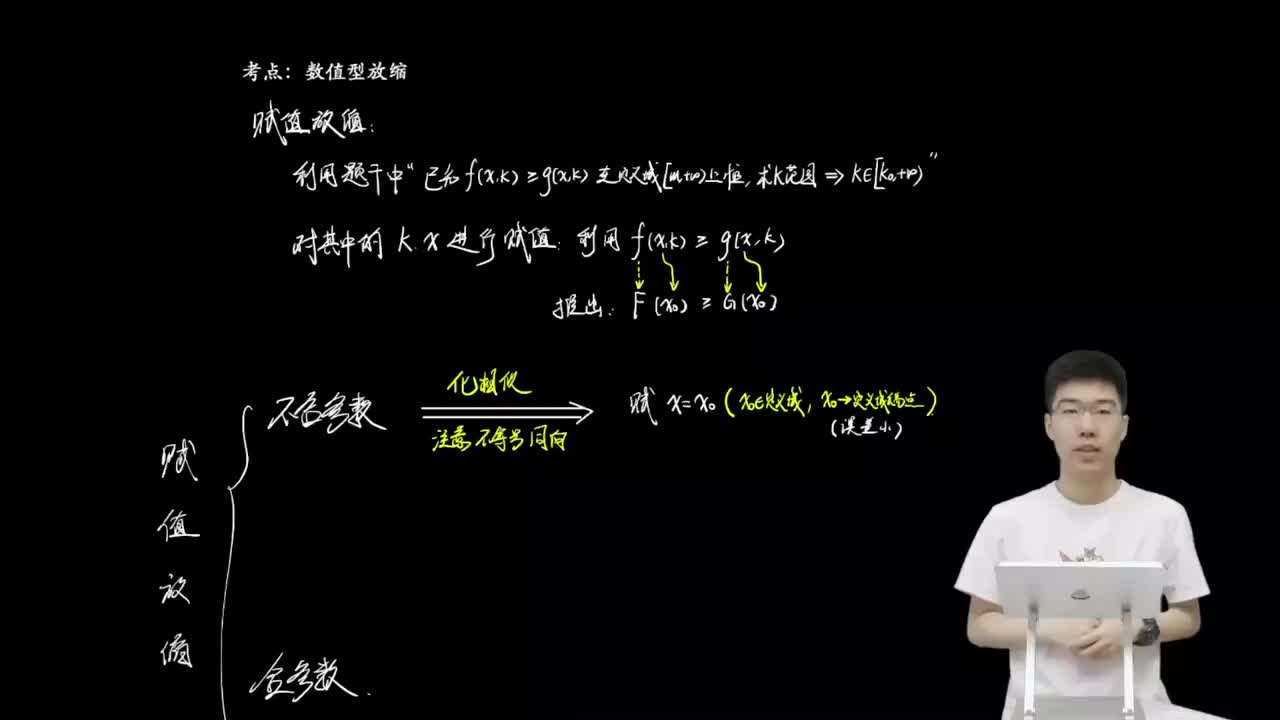 考点：数值型放缩
赋值放缩：
利用题干中“已知f(x,k)≥g(x,k)在定义域[m,+∞)上恒，求k范围⇒k∈[k₀,+∞)”
对其中的k.x进行赋值：利用f(x,k)≥g(x,k)
推出：F(x₀)≥G(x₀)
不含参数
化相似
注意不等号同向
赋x=x₀(x₀∈定义域，x₀→定义域端点)
(误差小)
赋值放缩
含参数.